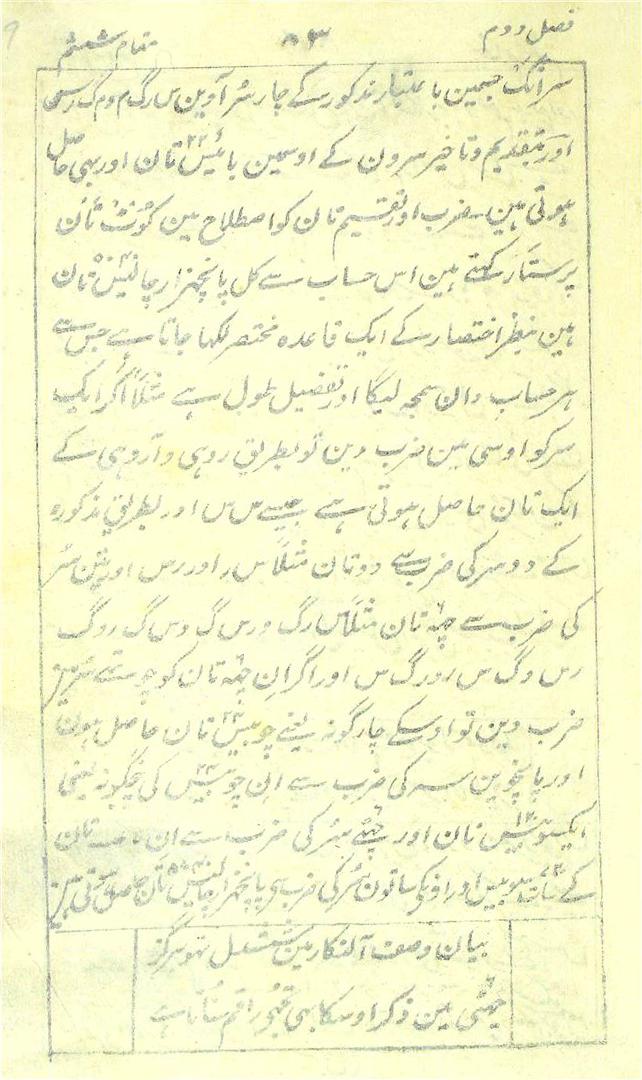 فصل دوم ۸۳ مقام ششم
سرانگ جسمین باعتبار مذکور کے چار سُر آوین س رگ م و م گ ر س
اور بتقدیم و تاخیر سرون کے اوسمین بائیس ۲۲ تان اور بہی حاصل
ہوتی ہین۔ ضرب اور تقسیم تان کو اصطلاح مین کوُنٹ تان
پرستار کہتے ہین اس حساب سے کل پانچہزار چالیس تان
ہین بنظر اختصار کے ایک قاعدہ مختصر لکہا جاتا ہے جس سے
ہر حساب دان سمجہ لیگا اور تفصیل طول ہے مثلاً اگر ایک
سر کو اوسی مین ضرب دین تو بطریق روہی و آروہی کے
ایک تان حاصل ہوتی ہے جیسے س س اور بطریق مذکورہ
کے دو سر کی ضرب سے دو تان مثلاً س ر اور ر س اور تین سُر
کی ضرب سے چہہ تان مثلاً س ر گ و ر س گ و س گ ر و گ
ر س و گ س ر و ر گ س اور اگر ان چہہ تان کو چوتھے سُر مین
ضرب دین تو اوسکے چارگونہ یعنے چوبیس ۲۴ تان حاصل ہون
اور پانچوین سر کی ضرب سے ان چوبیس ۲۴ کی پنجگونہ یعنی
ایکسو بیس ۱۲۰ تان اور چہٹے سُر کی ضرب سے ان تان
کے سات سو بیس ۷۲۰ اور ساتون سُر کی ضرب سے پانچہزار چالیس ۵۰۴۰ تان حاصل ہوتی ہین
بیان وصف آلنکار مین
چہٹی مین ذکر اوسکا بہی راقم سُناتا ہے